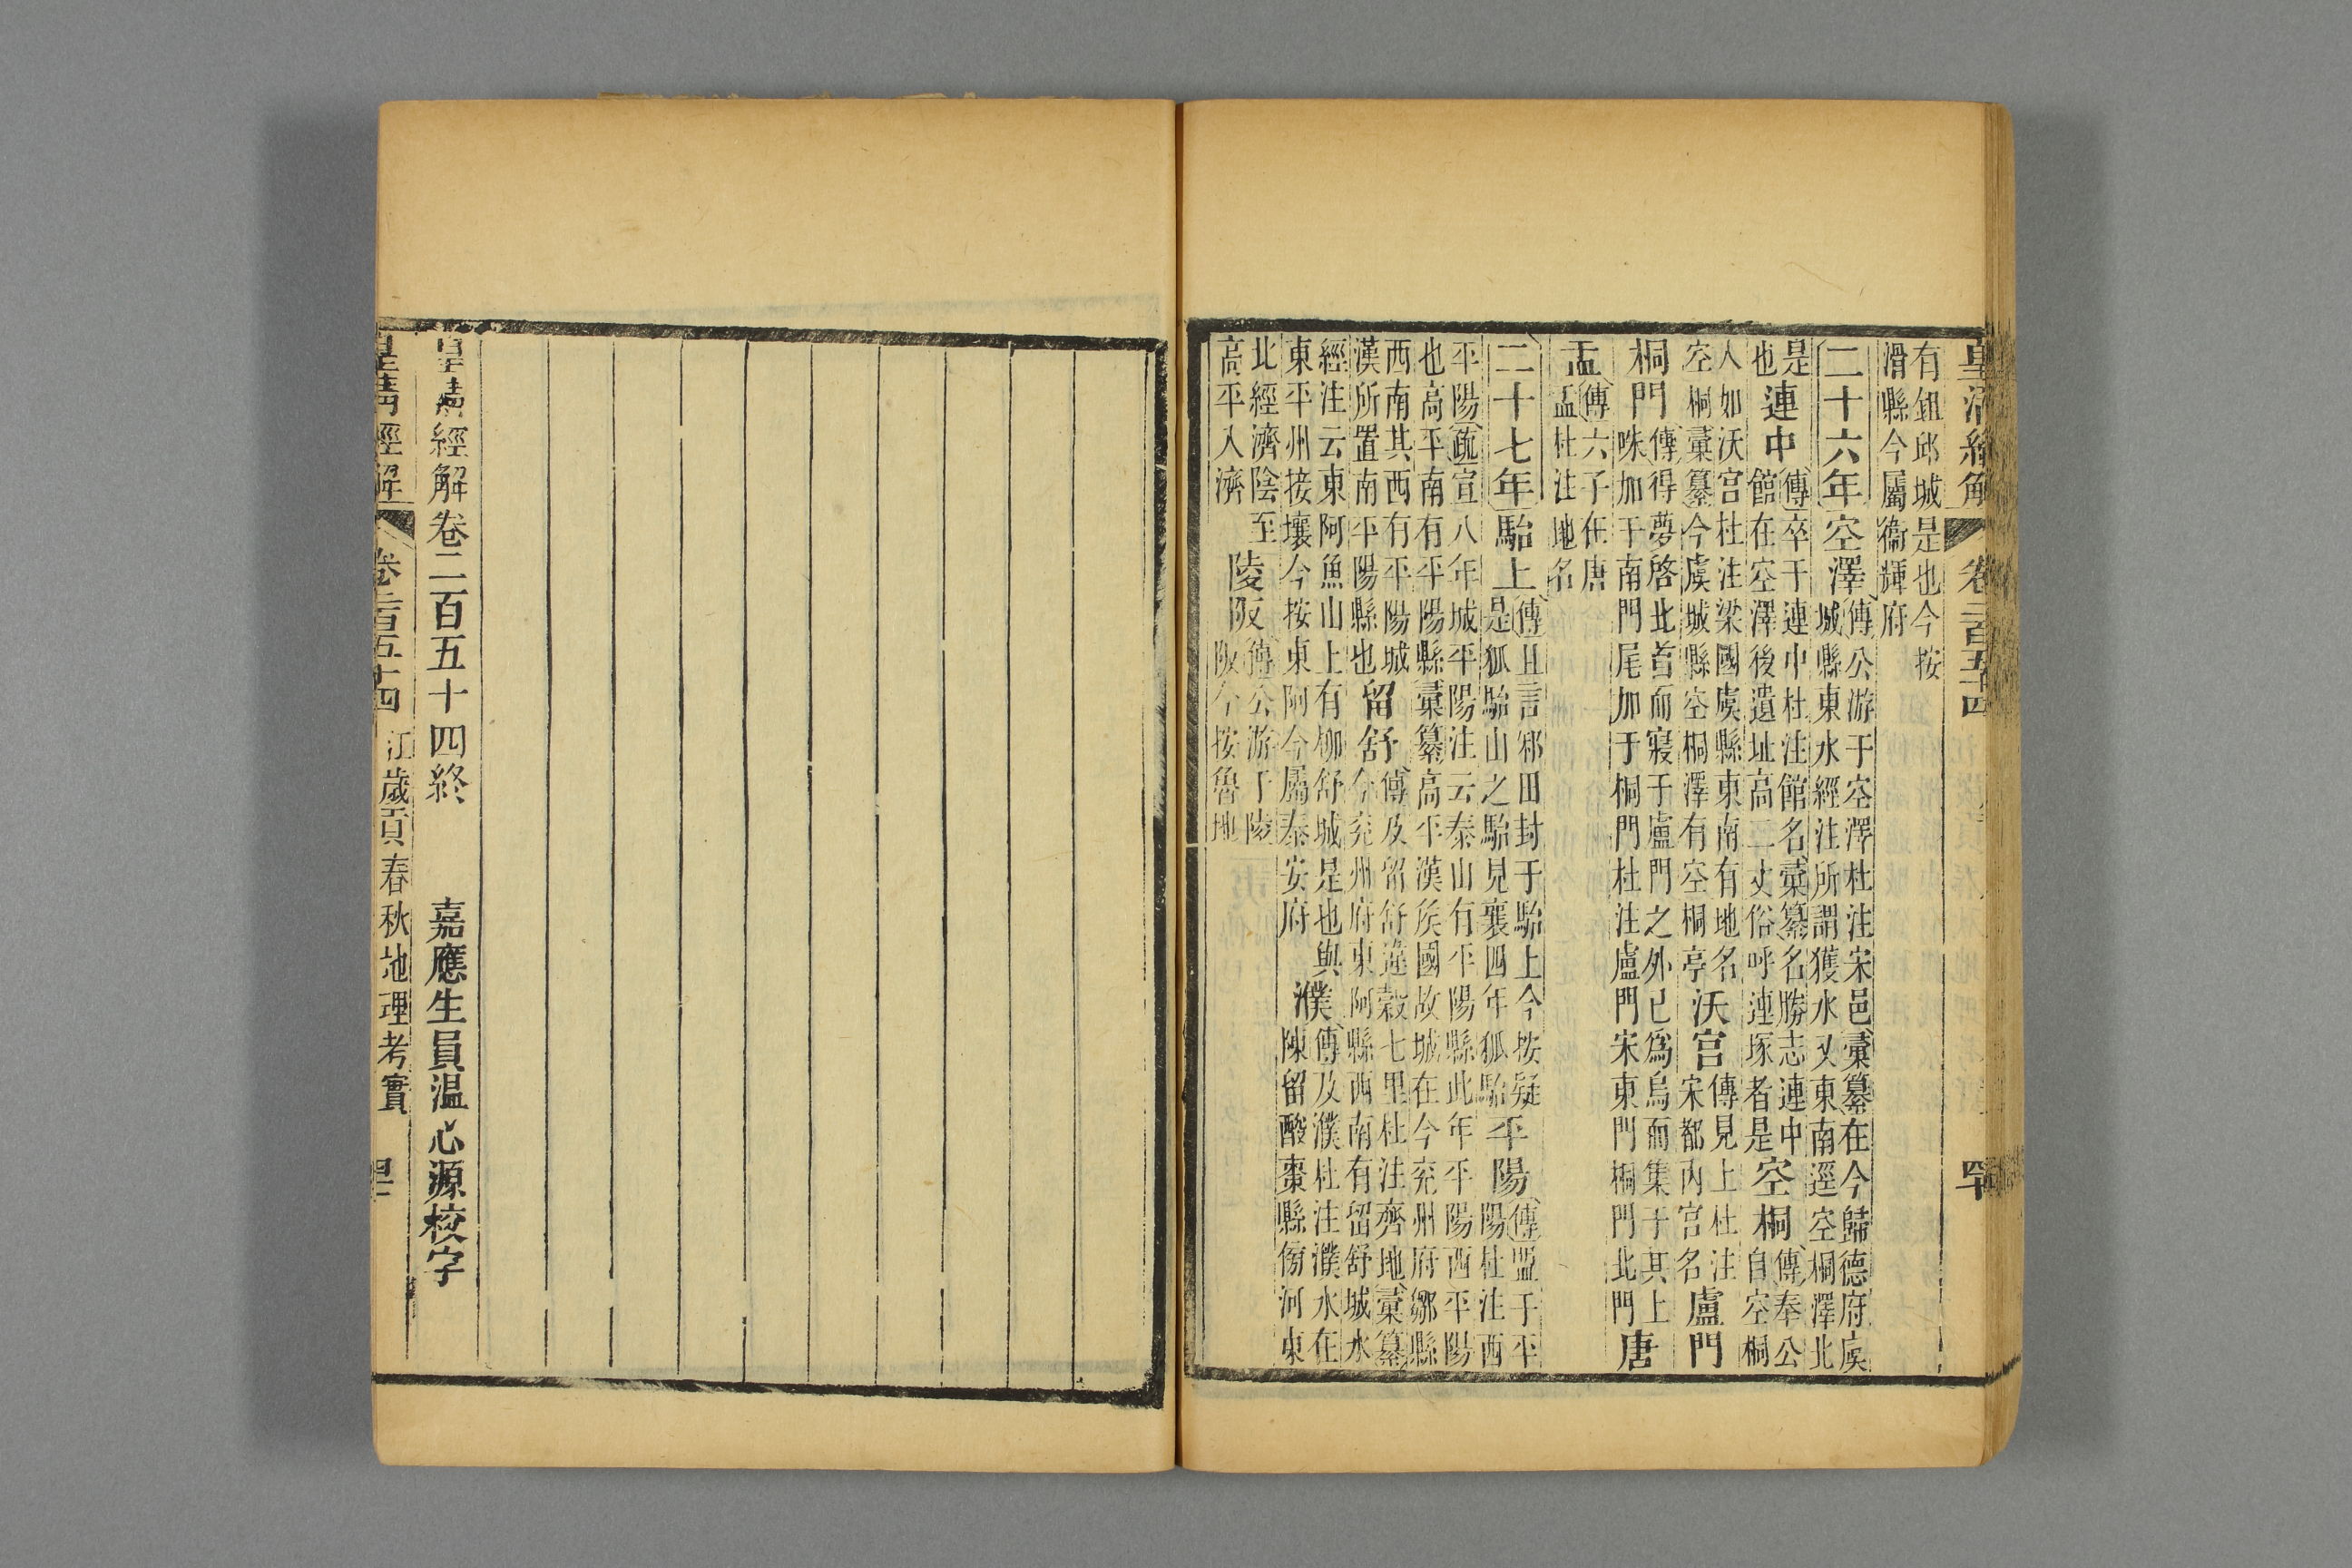 皇清經解 卷二百五十四 四十
有鈕邱城是也今按
滑縣今屬衞輝府
二十六年 空澤
傳公游于空澤杜注宋邑彚纂在今歸德府虞
城縣東水經注所謂獲水又東南逕空桐澤北
是
也
連中
傳卒于連中杜注館名彚纂名勝志連中
館在空澤後遺址高二丈俗呼連塚者是
空桐
傳奉公
自空桐
人如沃宫杜注梁國虞縣東南有地名
空桐彚纂今虞城縣空桐澤有空桐亭
沃宫
傳見上杜注
宋都内宫名
盧門
桐門
傳得夢啓北首而寢于盧門之外已爲烏而集于其上
咮加于南門尾加于桐門杜注盧門宋東門桐門北門
唐
盂
傳六子在唐
盂杜注地名
二十七年 駘上
傳且言邾田封于駘上今按疑
是狐駘山之駘見襄四年狐駘
平陽
傳盟于平
陽杜注西
平陽疏宣八年城平陽注云泰山有平陽縣此年平陽西平陽
也高平南有平陽縣彚纂高平漢侯國故城在今兖州府鄒縣
西南其西有平陽城
漢所置南平陽縣也
留舒
傳及留舒違穀七里杜注齊地彚纂
今兖州府東阿縣西南有留舒城水
經注云東阿魚山上有栁舒城是也與
東平州接壤今按東阿今屬泰安府
濮
傳及濮杜注濮水在
陳留酸棗縣傍河東
北經濟陰至
高平入濟
陵阪
傳公游于陵
阪今按魯地
皇清經解卷二百五十四終 嘉應生員温心源校字
皇清經解 卷二百五十四 江歲貢春秋地理考實